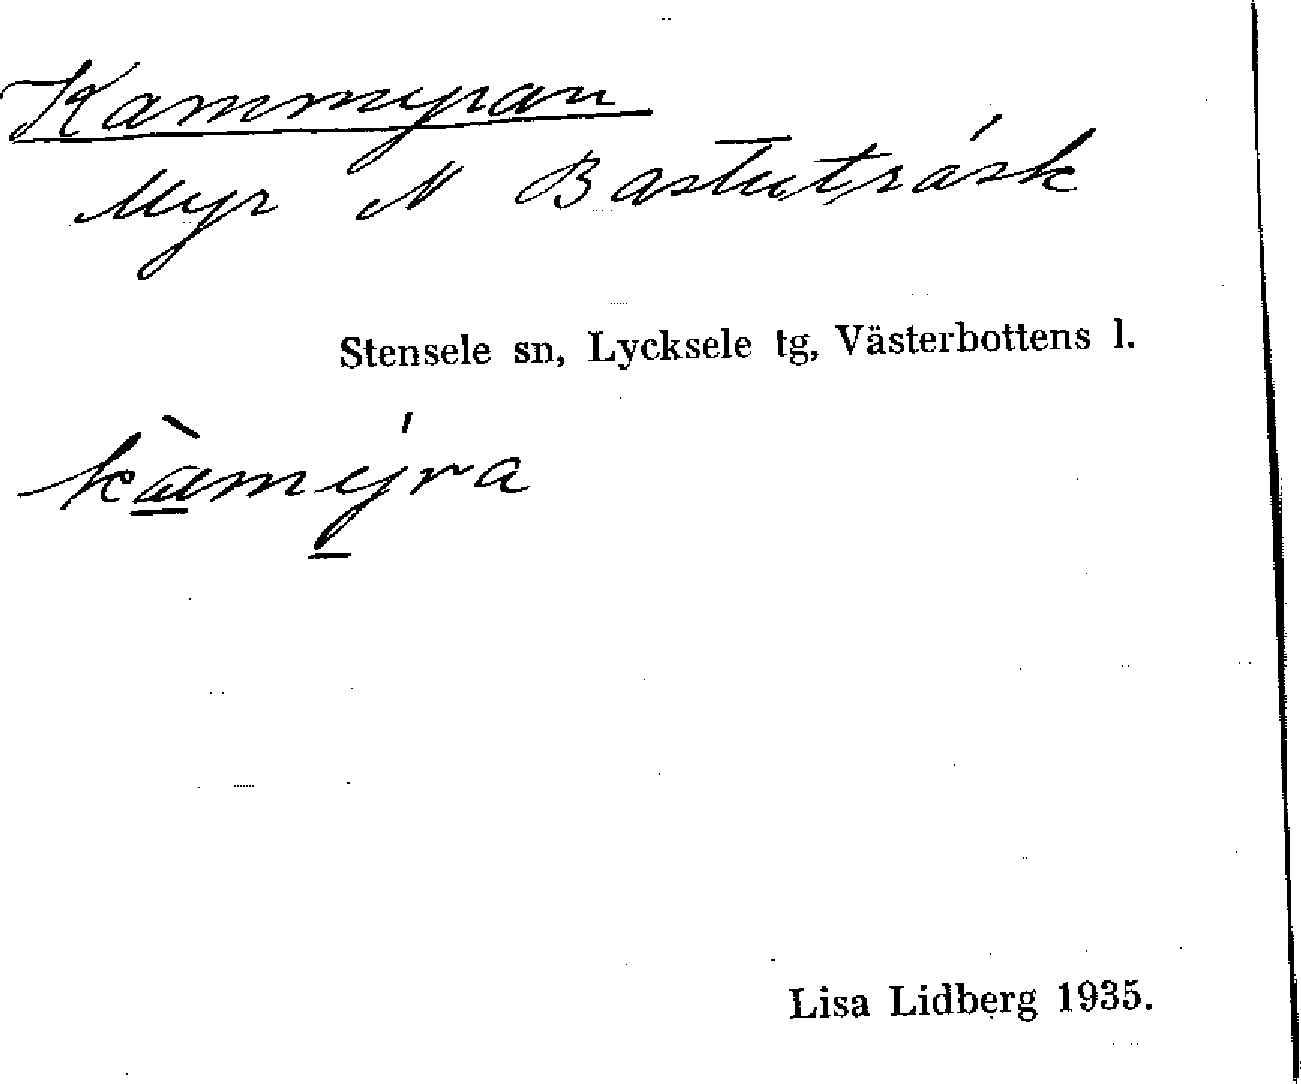 Kammyran
Myr N Bastuträsk
Stensele sn, Lycksele tg, Västerbottens l.
kàmýra
Lisa Lidberg 1935.